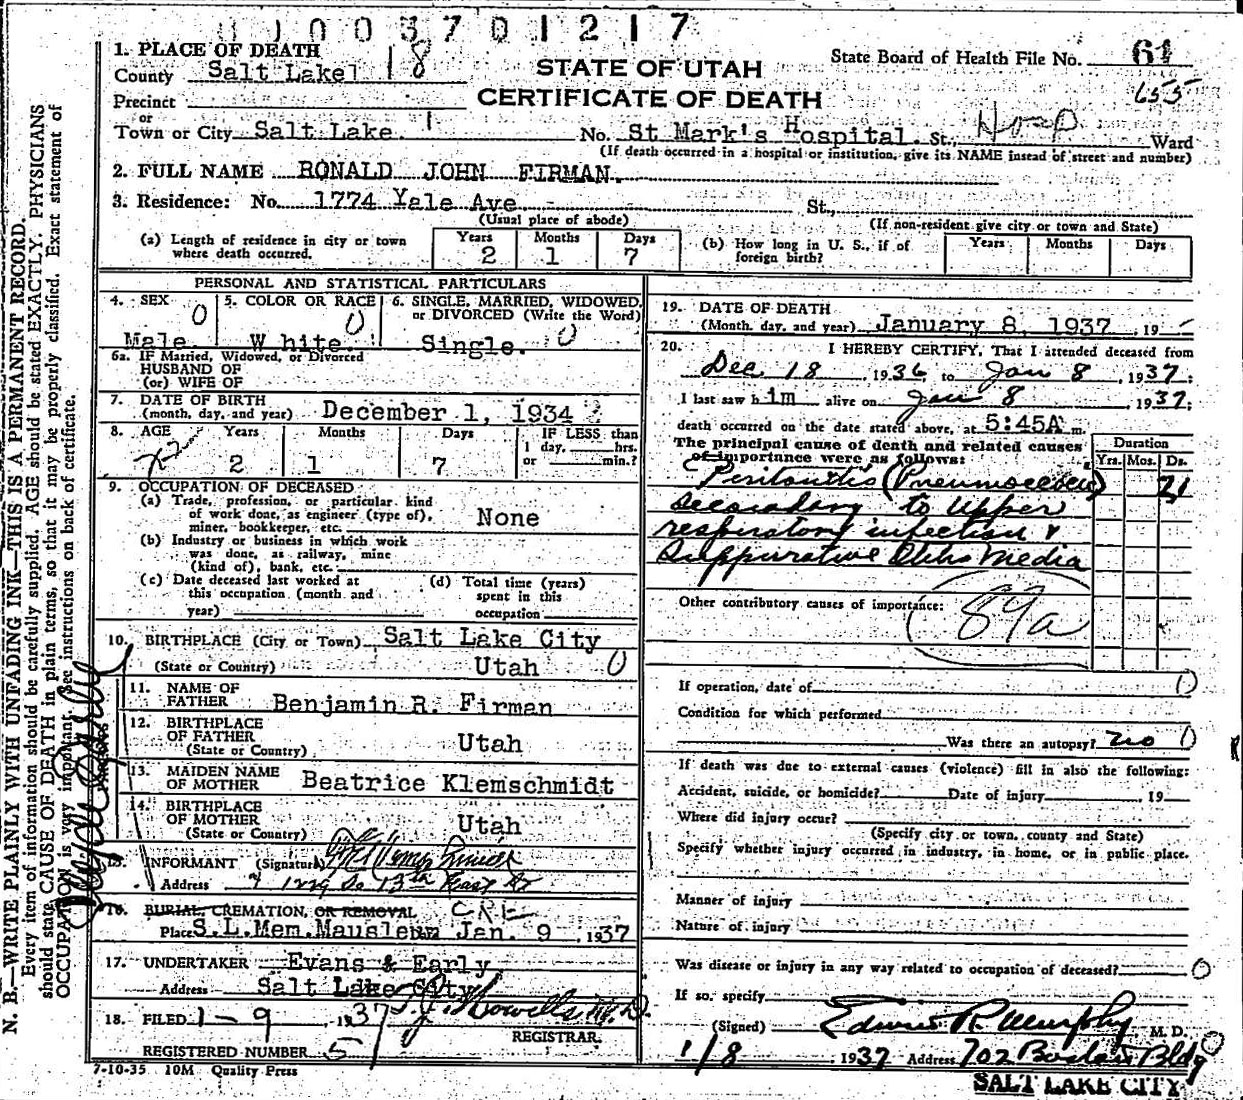 1 0 0 3 7 0 1 2 1 7
1. PLACE OF DEATH
County Salt Lake1 18
STATE OF UTAH
CERTIFICATE OF DEATH
State Board of Health File No. 61
655
Precinct
or
Town or City Salt Lake. 1 No. St Mark's Hospital. St., Hosp Ward
(If death occurred in a hospital or institution, give its NAME insead of street and number)
2. FULL NAME RONALD JOHN FIRMAN.
3. Residence: No. 1774 Yale Ave St.,
(Usual place of abode) (If non-resident give city or town and State)
(a) Length of residence in city or town where death occurred. Years 2 Months 1 Days 7
(b) How long in U. S., if of foreign birth? Years Months Days
PERSONAL AND STATISTICAL PARTICULARS
4. SEX 0 Male
5. COLOR OR RACE 0 White.
6. SINGLE, MARRIED, WIDOWED, or DIVORCED (Write the Word) Single. 0
6a. IF Married, Widowed, or Divorced
HUSBAND OF
(or) WIFE OF
7. DATE OF BIRTH
(month, day, and year) December 1, 1934
8. AGE Years 2 Months 1 Days 7
IF LESS than 1 day, hrs. or min.?
9. OCCUPATION OF DECEASED
(a) Trade, profession, or particular kind of work done, as engineer (type of), miner, bookkeeper, etc. None
(b) Industry or business in which work was done, as railway, mine (kind of), bank, etc.
(c) Date deceased last worked at this occupation (month and year)
(d) Total time (years) spent in this occupation
10. BIRTHPLACE (City or Town) Salt Lake City
(State or Country) Utah 0
11. NAME OF FATHER Benjamin R. Firman
12. BIRTHPLACE OF FATHER
(State or Country) Utah
13. MAIDEN NAME OF MOTHER Beatrice Klemschmidt
14. BIRTHPLACE OF MOTHER
(State or Country) Utah
15. INFORMANT (Signature)
Address 1229 So 13th East St
16. BURIAL, CREMATION, OR REMOVAL CRE
Place S.L.Mem.Mausleum Jan. 9, 1937
17. UNDERTAKER Evans & Early
Address Salt Lake City
18. FILED 1-9, 1937
REGISTRAR.
REGISTERED NUMBER 5
7-10-35 10M Quality Press
19. DATE OF DEATH
(Month, day, and year) January 8, 1937, 19
20. I HEREBY CERTIFY, That I attended deceased from
Dec 18, 1936, to Jan 8, 1937;
I last saw him alive on Jan 8 1937;
death occurred on the date stated above, at 5:45A m.
The principal cause of death and related causes of importance were as follows:
Duration
Yrs. Mos. Ds.
Peritonitis (Pneumococcus) 21
secondary to Upper
respiratory infection &
Suppurative Otitis Media
Other contributory causes of importance: 89a
If operation, date of 0
Condition for which performed
Was there an autopsy? no 0
If death was due to external causes (violence) fill in also the following:
Accident, suicide, or homicide? Date of injury , 19
Where did injury occur?
(Specify city or town, county and State)
Specify whether injury occurred in industry, in home, or in public place.
Manner of injury
Nature of injury
Was disease or injury in any way related to occupation of deceased? 0
If so, specify
(Signed) Edwin R. Murphy M. D.
1/8, 1937 Address 702 Boston Bldg
SALT LAKE CITY
N. B.—WRITE PLAINLY WITH UNFADING INK—THIS IS A PERMANENT RECORD.
Every item of information should be carefully supplied. AGE should be stated EXACTLY. PHYSICIANS
should state CAUSE OF DEATH in plain terms, so that it may be properly classified. Exact statement of
OCCUPATION is very important. See instructions on back of certificate.